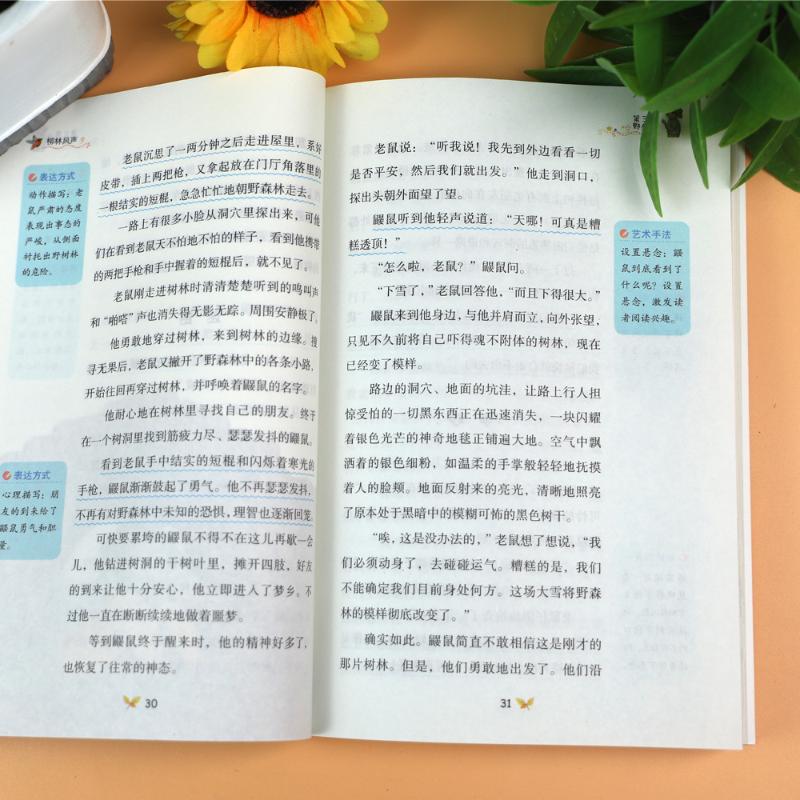 柳林风声
老鼠沉思了一两分钟之后走进屋里，系好
皮带，插上两把枪，又拿起放在门厅角落里的
一根结实的短棍，急急忙忙地朝野森林走去。
一路上有很多小脸从洞穴里探出来，可他
们在看到老鼠天不怕地不怕的样子，看到他携带
的两把手枪和手中握着的短棍后，就不见了。
老鼠刚走进树林时清清楚楚听到的鸣叫声
和“啪嗒”声也消失得无影无踪。周围安静极了。
他勇敢地穿过树林，来到树林的边缘。搜
寻无果后，老鼠又撇开了野森林中的各条小路，
开始往回再穿过树林，并呼唤着鼹鼠的名字。
他耐心地在树林里寻找自己的朋友。终于
在一个树洞里找到筋疲力尽、瑟瑟发抖的鼹鼠。
看到老鼠手中结实的短棍和闪烁着寒光的
手枪，鼹鼠渐渐鼓起了勇气。他不再瑟瑟发抖，
不再有对野森林中未知的恐惧，理智也逐渐回笼。
可快要累垮的鼹鼠不得不在这儿再歇一会
儿，他钻进树洞的干树叶里，摊开四肢，好友
的到来让他十分安心，他立即进入了梦乡。不
过他一直在断断续续地做着噩梦。
等到鼹鼠终于醒来时，他的精神好多了，
也恢复了往常的神态。
表达方式
动作描写：老
鼠严肃的态度
表现出事态的
严峻，从侧面
衬托出野树林
的危险。
表达方式
心理描写：朋
友的到来给了
鼹鼠勇气和胆
量。
30
第三
老鼠说：“听我说！我先到外边看看一切
是否平安，然后我们就出发。”他走到洞口，
探出头朝外面望了望。
鼹鼠听到他轻声说道：“天哪！可真是糟
糕透顶！”
“怎么啦，老鼠？”鼹鼠问。
“下雪了，”老鼠回答他，“而且下得很大。”
鼹鼠来到他身边，与他并肩而立，向外张望，
只见不久前将自己吓得魂不附体的树林，现在
已经变了模样。
路边的洞穴、地面的坑洼，让路上行人担
惊受怕的一切黑东西正在迅速消失，一块闪耀
着银色光芒的神奇地毯正铺遍大地。空气中飘
洒着的银色细粉，如温柔的手掌般轻轻地抚摸
着人的脸颊。地面反射来的亮光，清晰地照亮
了原本处于黑暗中的模糊可怖的黑色树干。
“唉，这是没办法的，”老鼠想了想说，“我
们必须动身了，去碰碰运气。糟糕的是，我们
不能确定我们目前身处何方。这场大雪将野森
林的模样彻底改变了。”
确实如此。鼹鼠简直不敢相信这是刚才的
那片树林。但是，他们勇敢地出发了。他们沿
艺术手法
设置悬念：鼹
鼠到底看到了
什么呢？设置
悬念，激发读
者阅读兴趣。
31